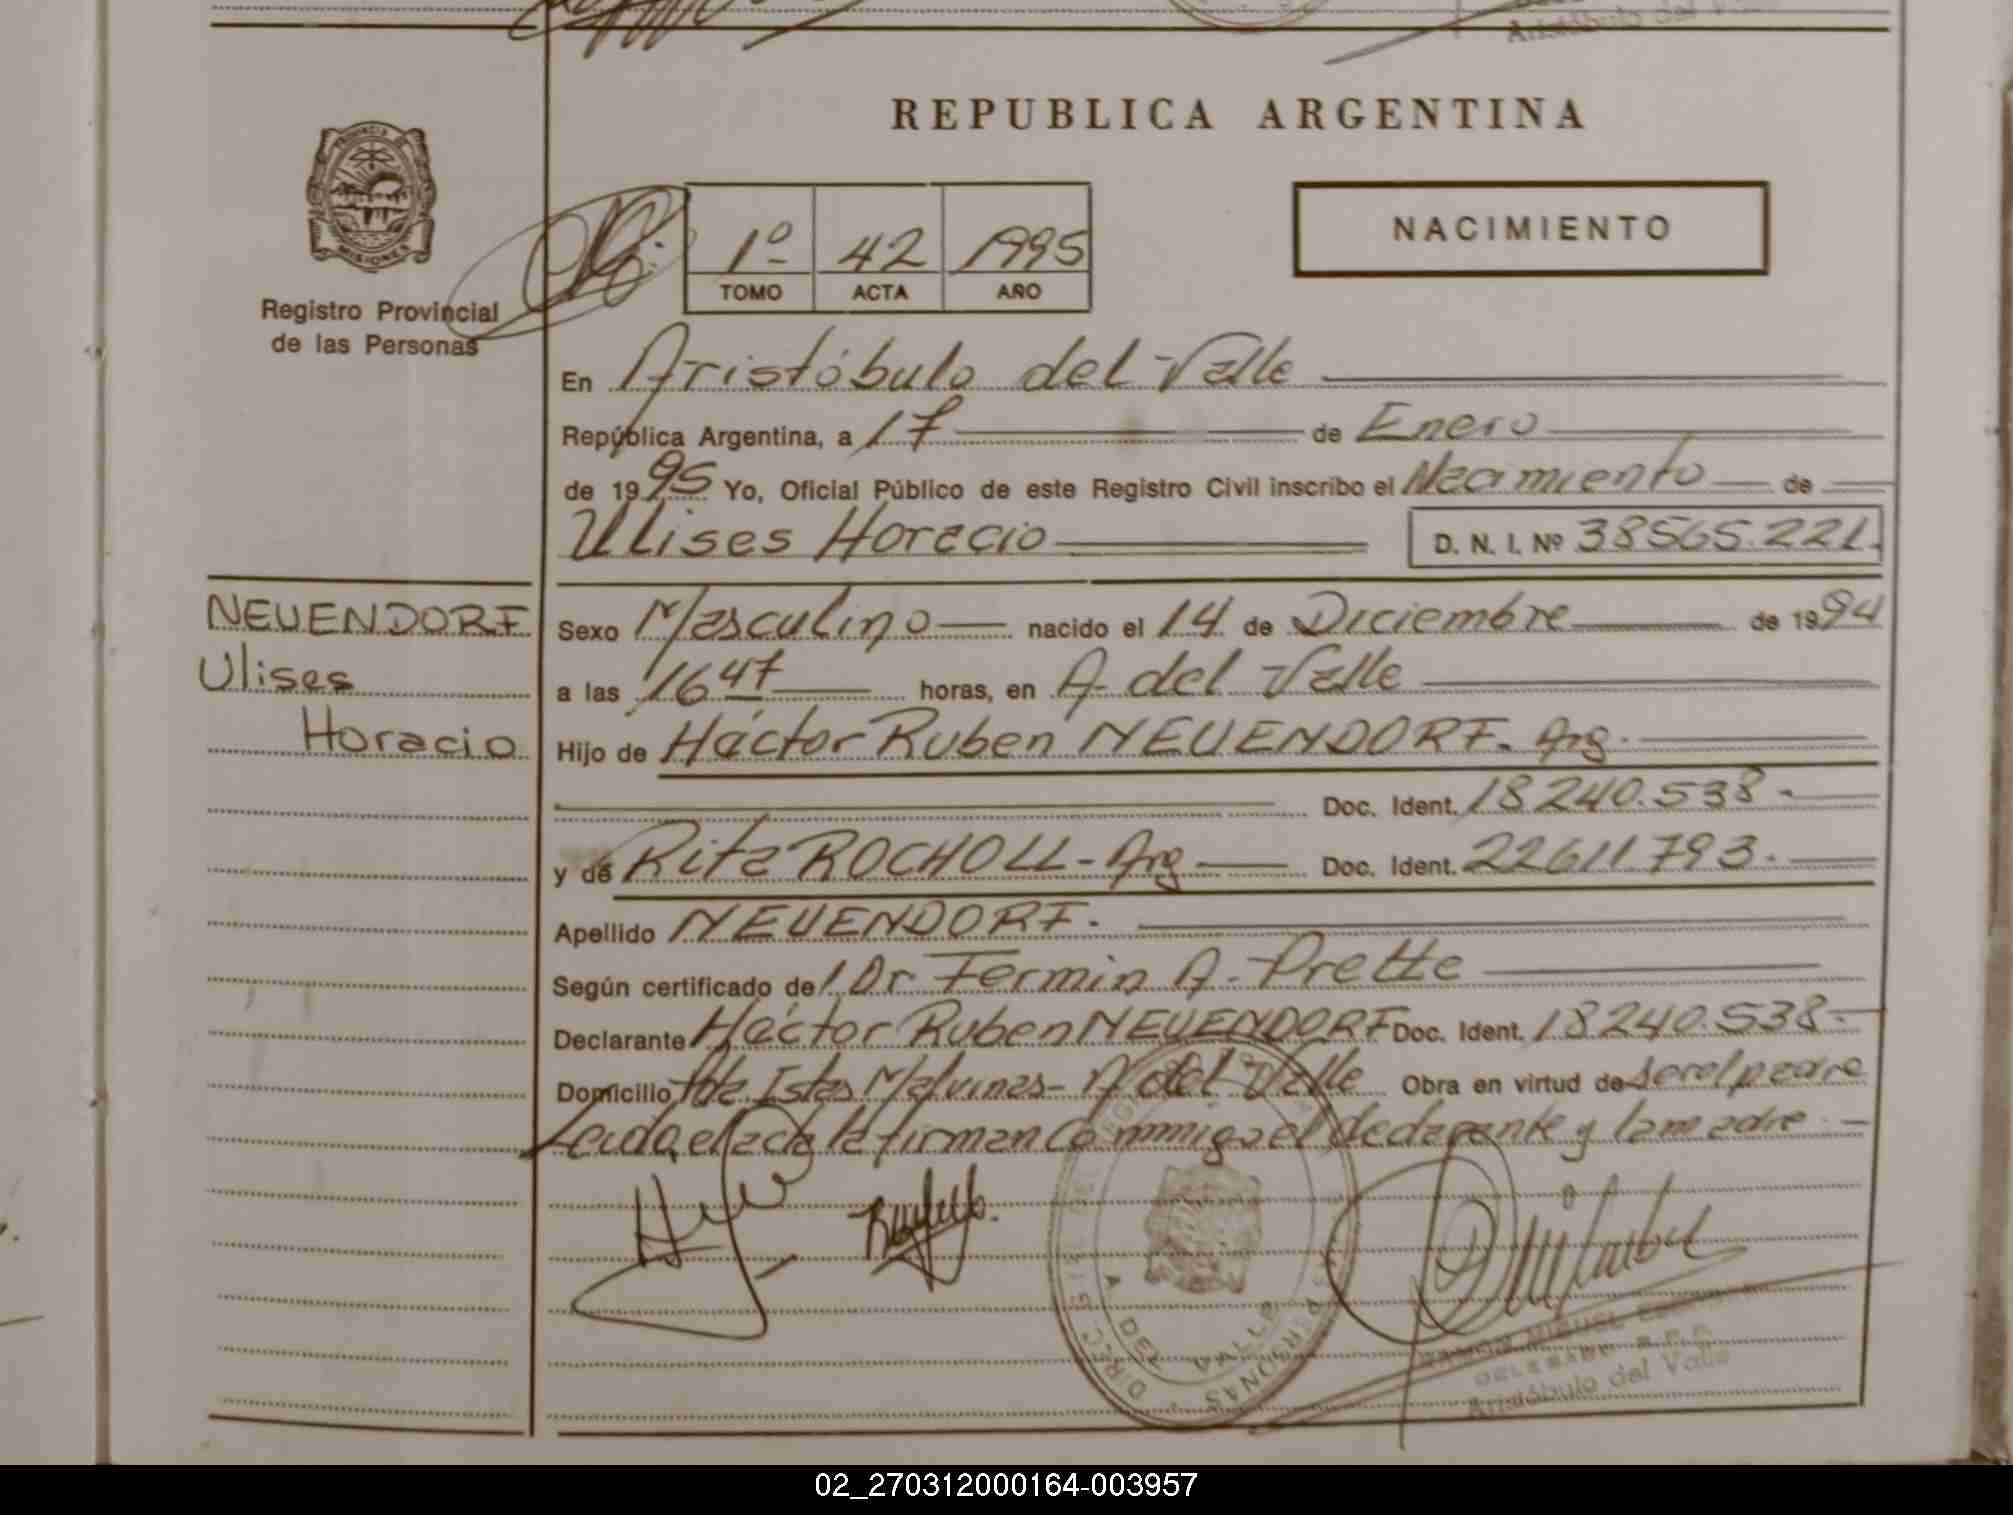 Aristóbulo del Valle
REPUBLICA ARGENTINA
PROVINCIA DE
MISIONES
Registro Provincial
de las Personas
1º 42 1995
TOMO ACTA AÑO
NACIMIENTO
En Aristóbulo del Valle
República Argentina, a 17 de Enero
de 1995 Yo, Oficial Público de este Registro Civil inscribo el Nacimiento de
Ulises Horacio D. N. I. Nº 38565.221.
NEUENDORF
Ulises
Horacio
Sexo Masculino nacido el 14 de Diciembre de 1994
a las 16 47 horas, en A. del Valle
Hijo de Háctor Ruben NEUENDORF. Arg.
Doc. Ident. 18240.538.-
y de Rita ROCHOLL - Arg Doc. Ident. 22611.793.
Apellido NEUENDORF.
Según certificado de l Dr Fermin A. Prette
Declarante Háctor Ruben NEUENDORF Doc. Ident. 18240.538.-
Domicilio Pte. Islas Malvinas - A del Valle Obra en virtud de ser el padre
Leida el acta la firman Conmigo el declarante y la madre.-
DIREC. REGISTRO PERSONAS
A. DEL VALLE
RAMON MIGUEL
DELEGADO R.P.P.
Aristóbulo del Valle
02_270312000164-003957